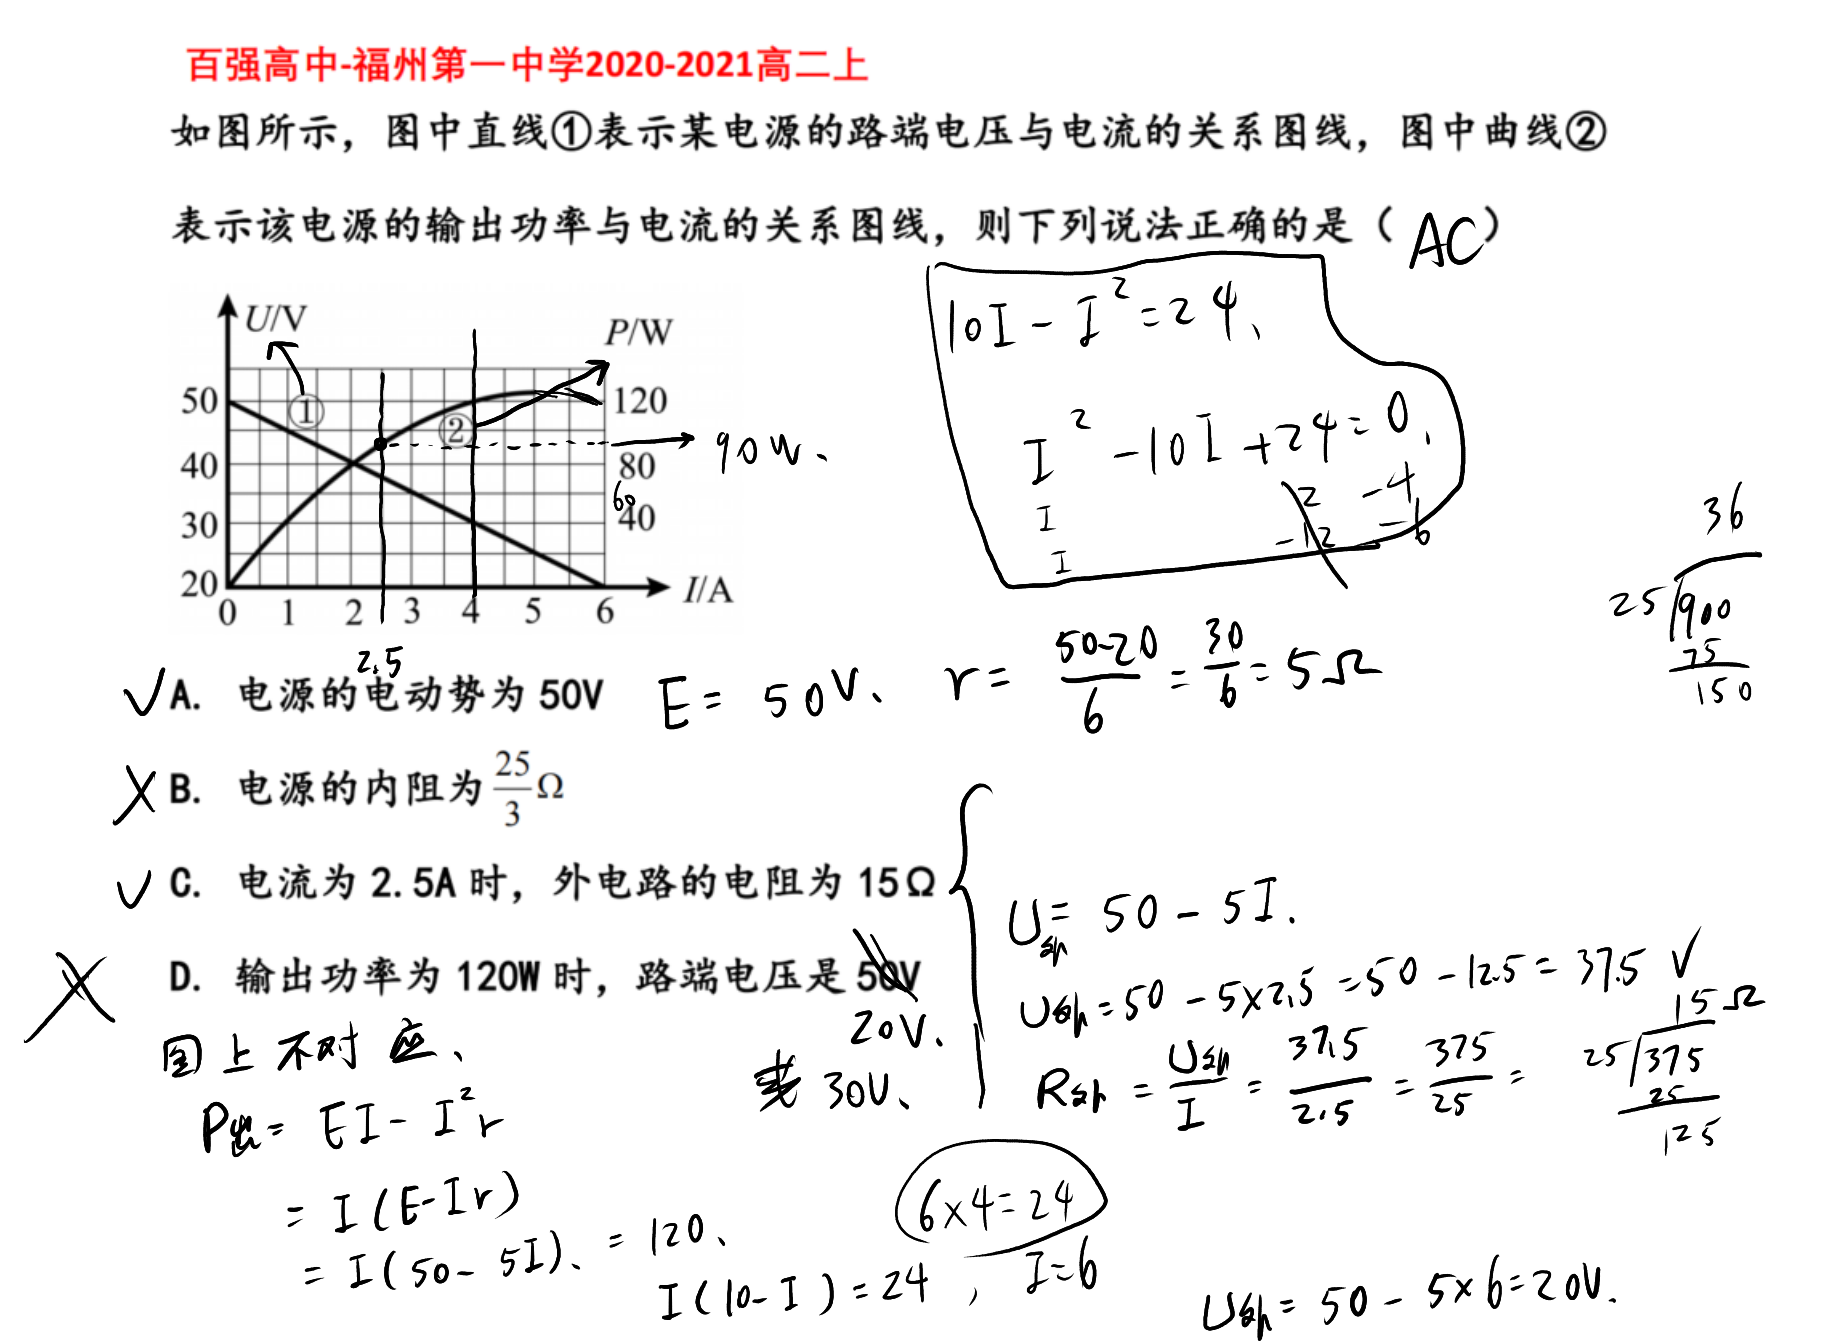 百强高中-福州第一中学2020-2021高二上
如图所示，图中直线①表示某电源的路端电压与电流的关系图线，图中曲线②
表示该电源的输出功率与电流的关系图线，则下列说法正确的是（ AC ）
U/V
P/W
50
40
30
20
①
②
120
80
60
40
90W、
0 1 2 3 4 5 6
I/A
2.5
10I - I² = 24、
I² - 10I + 24 = 0、
I 2 -4
I -12 -6
✓ A. 电源的电动势为 50V
E = 50V、 r = (50-20)/6 = 30/6 = 5Ω
36
25 900
75
150
X B. 电源的内阻为 25/3 Ω
✓ C. 电流为 2.5A 时，外电路的电阻为 15Ω
U外 = 50 - 5I.
U外 = 50 - 5×2.5 = 50 - 12.5 = 37.5 ✓
R外 = U外/I = 37.5/2.5 = 375/25 =
15Ω
25 375
25
125
X D. 输出功率为 120W 时，路端电压是 50V
20V、
或 30V、
图上不对应、
P出 = EI - I²r
= I(E-Ir)
= I(50-5I)、 = 120、
I(10-I) = 24 , I=6
6×4=24
U外 = 50 - 5×6 = 20V.